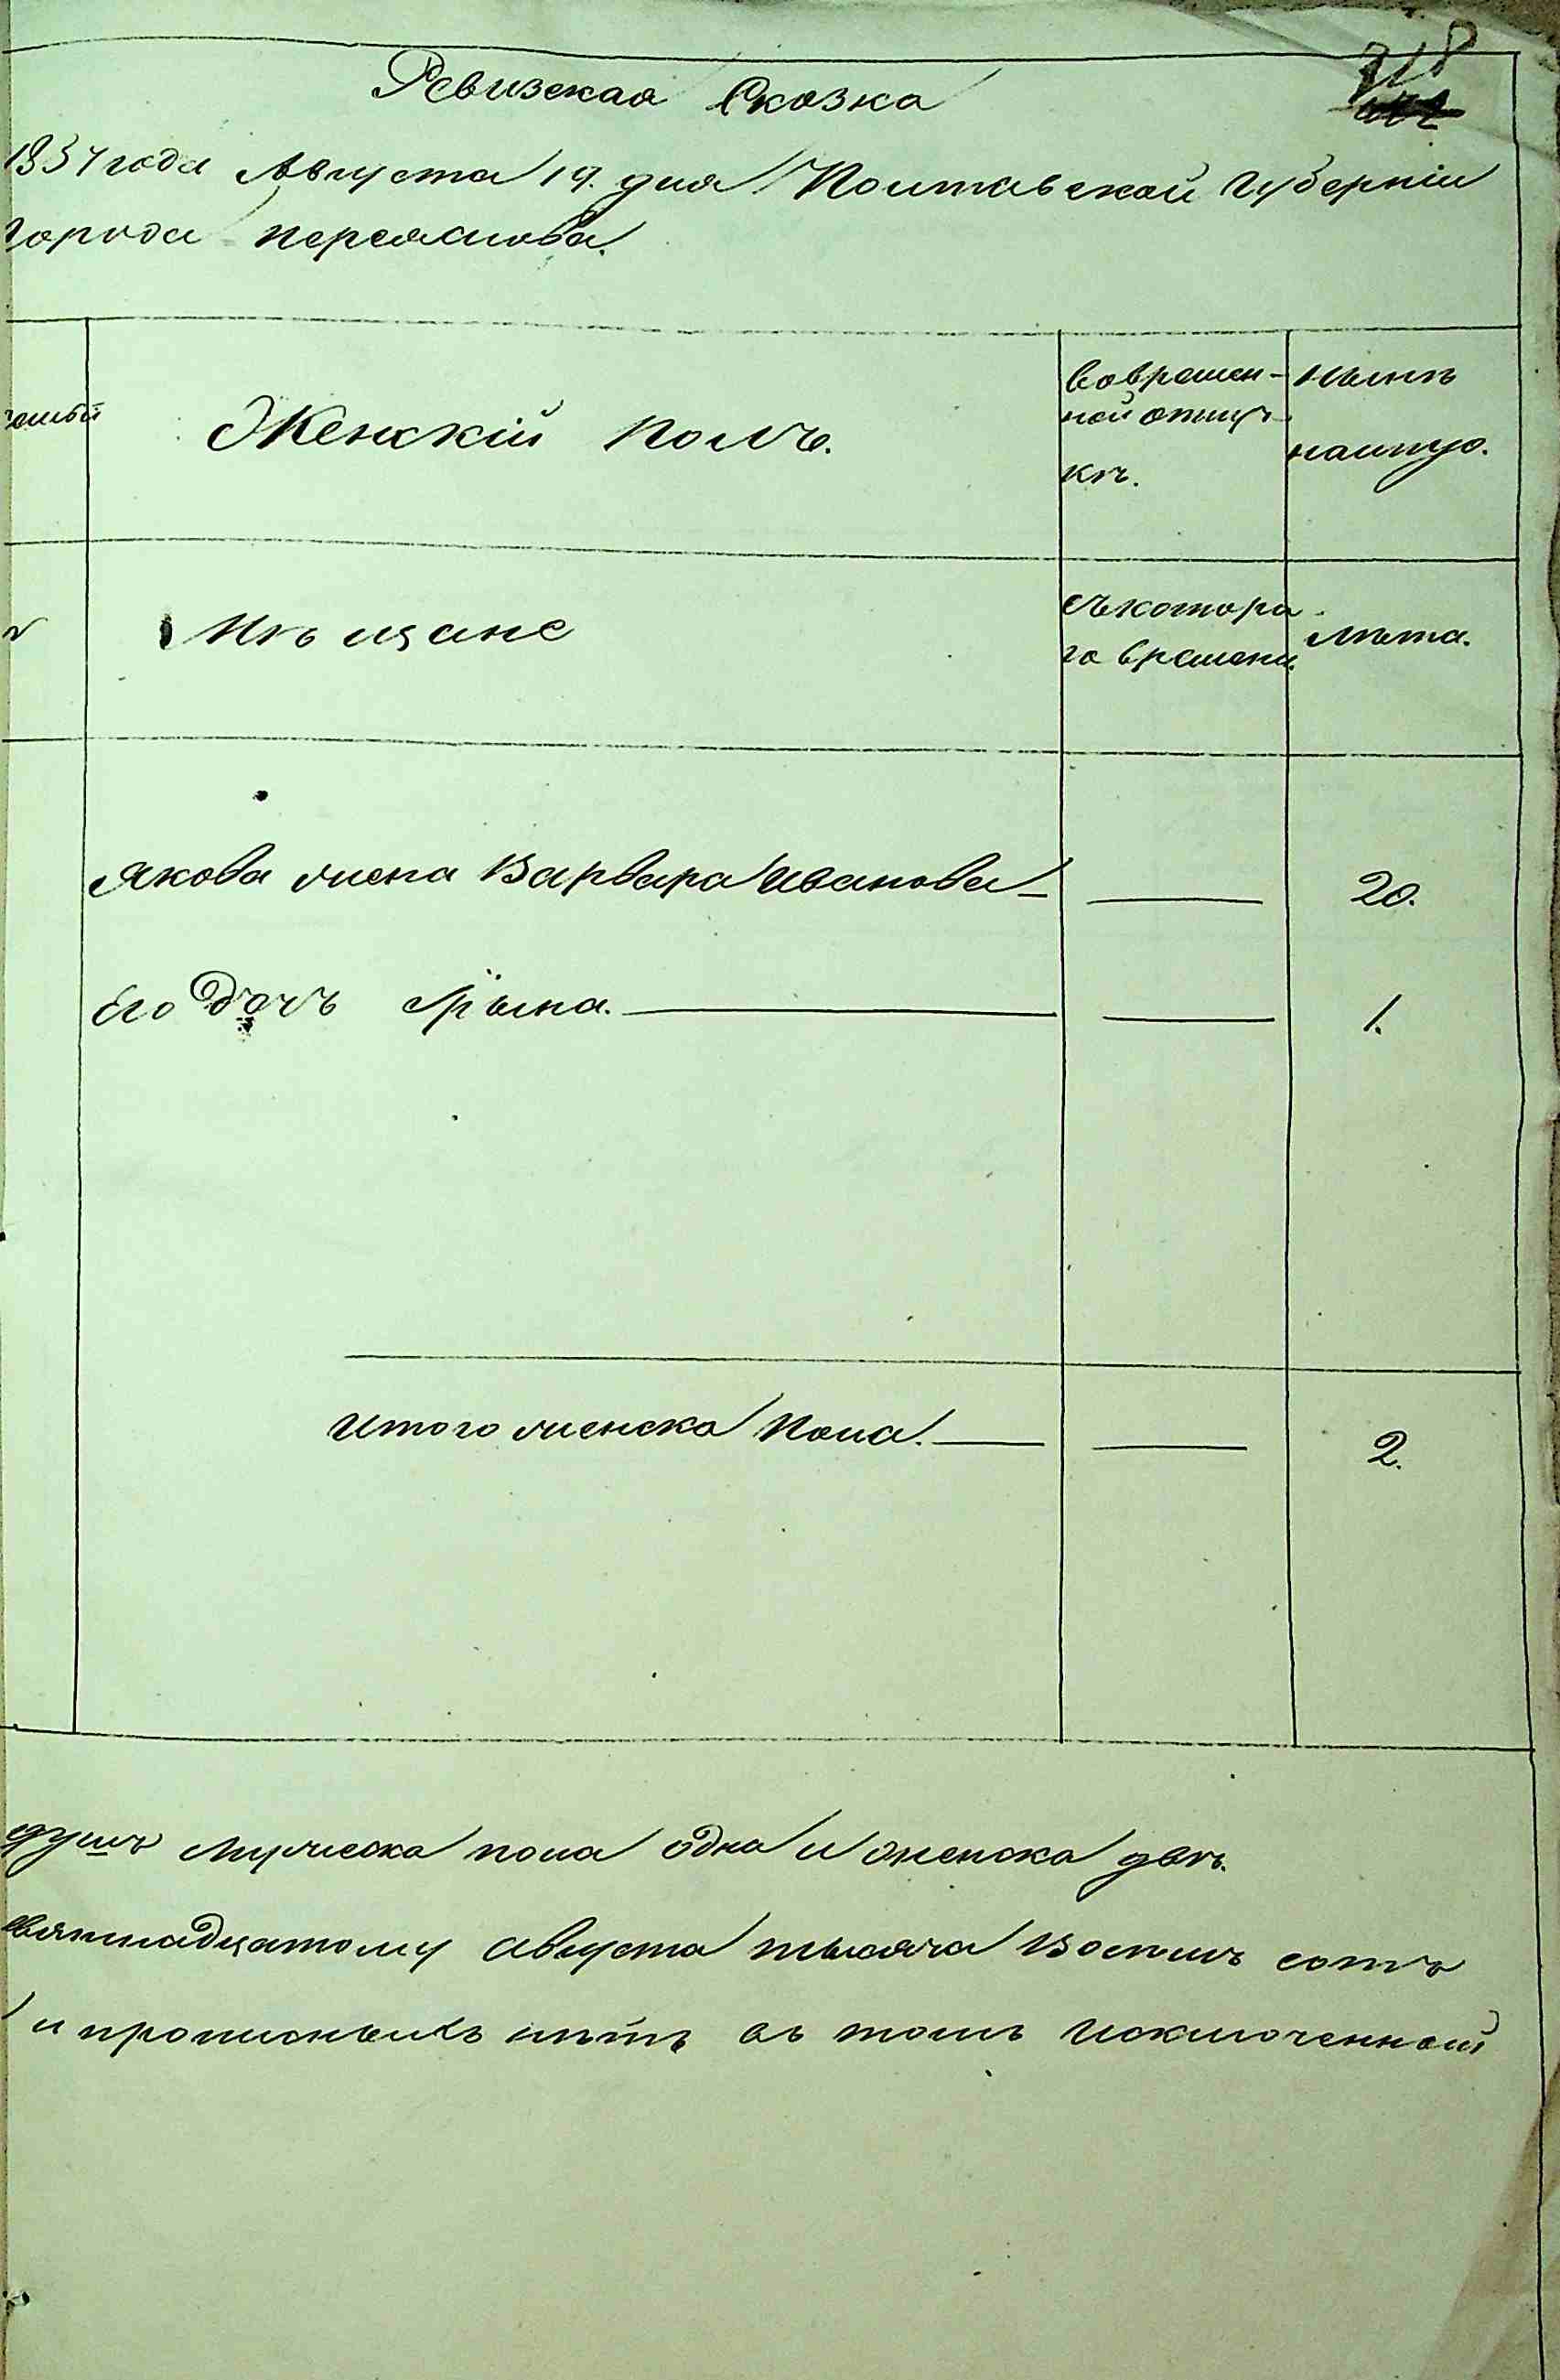 Ревизская Сказка
318
года Августа 19. дня Полтавской Губерніи
города Переяслова.
Женскій полъ.
Вовремен-
ной отлуч-
кѣ.
Нынѣ
налицо.
Мѣщане
Съкотора
го времени.
лѣта.
Якова жена Варвара Иванова — — 20.
Его дочь — — 1.
Итого женска пола. — — 2.
душъ мужеска пола одна и женска двѣ.
августа тысяча восемь сотъ
и прописныхъ нѣтъ въ томъ исключенной